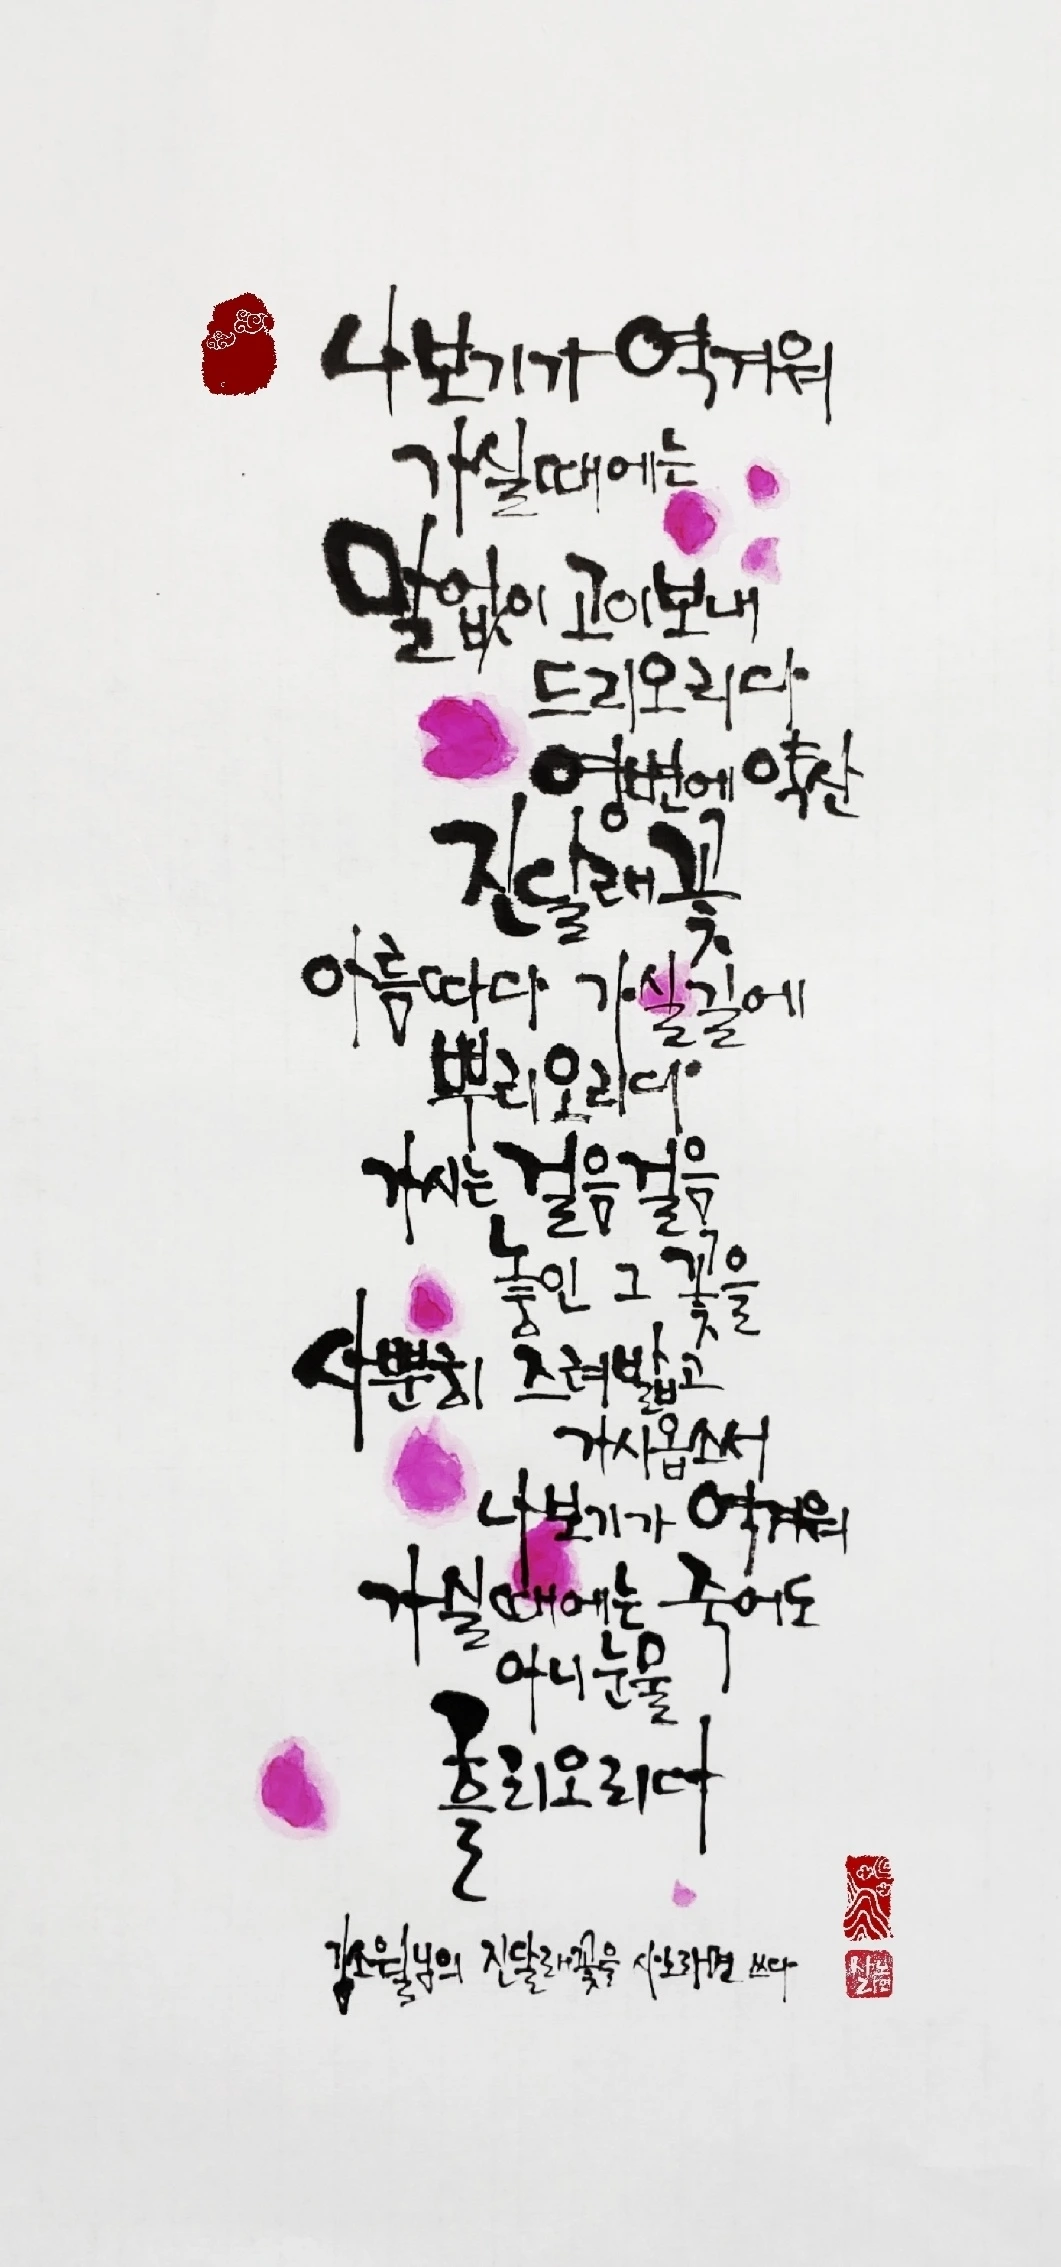 나보기가 역겨워
가실때에는
말없이 고이보내
드리오리다
영변에 약산
진달래꽃
아름따다 가실길에
뿌리오리다
가시는 걸음걸음
놓인 그 꽃을
사뿐히 즈려밟고
가시옵소서
나보기가 역겨워
가실때에는 죽어도
아니눈물
흘리오리다
김소월님의 진달래꽃을 쓰다